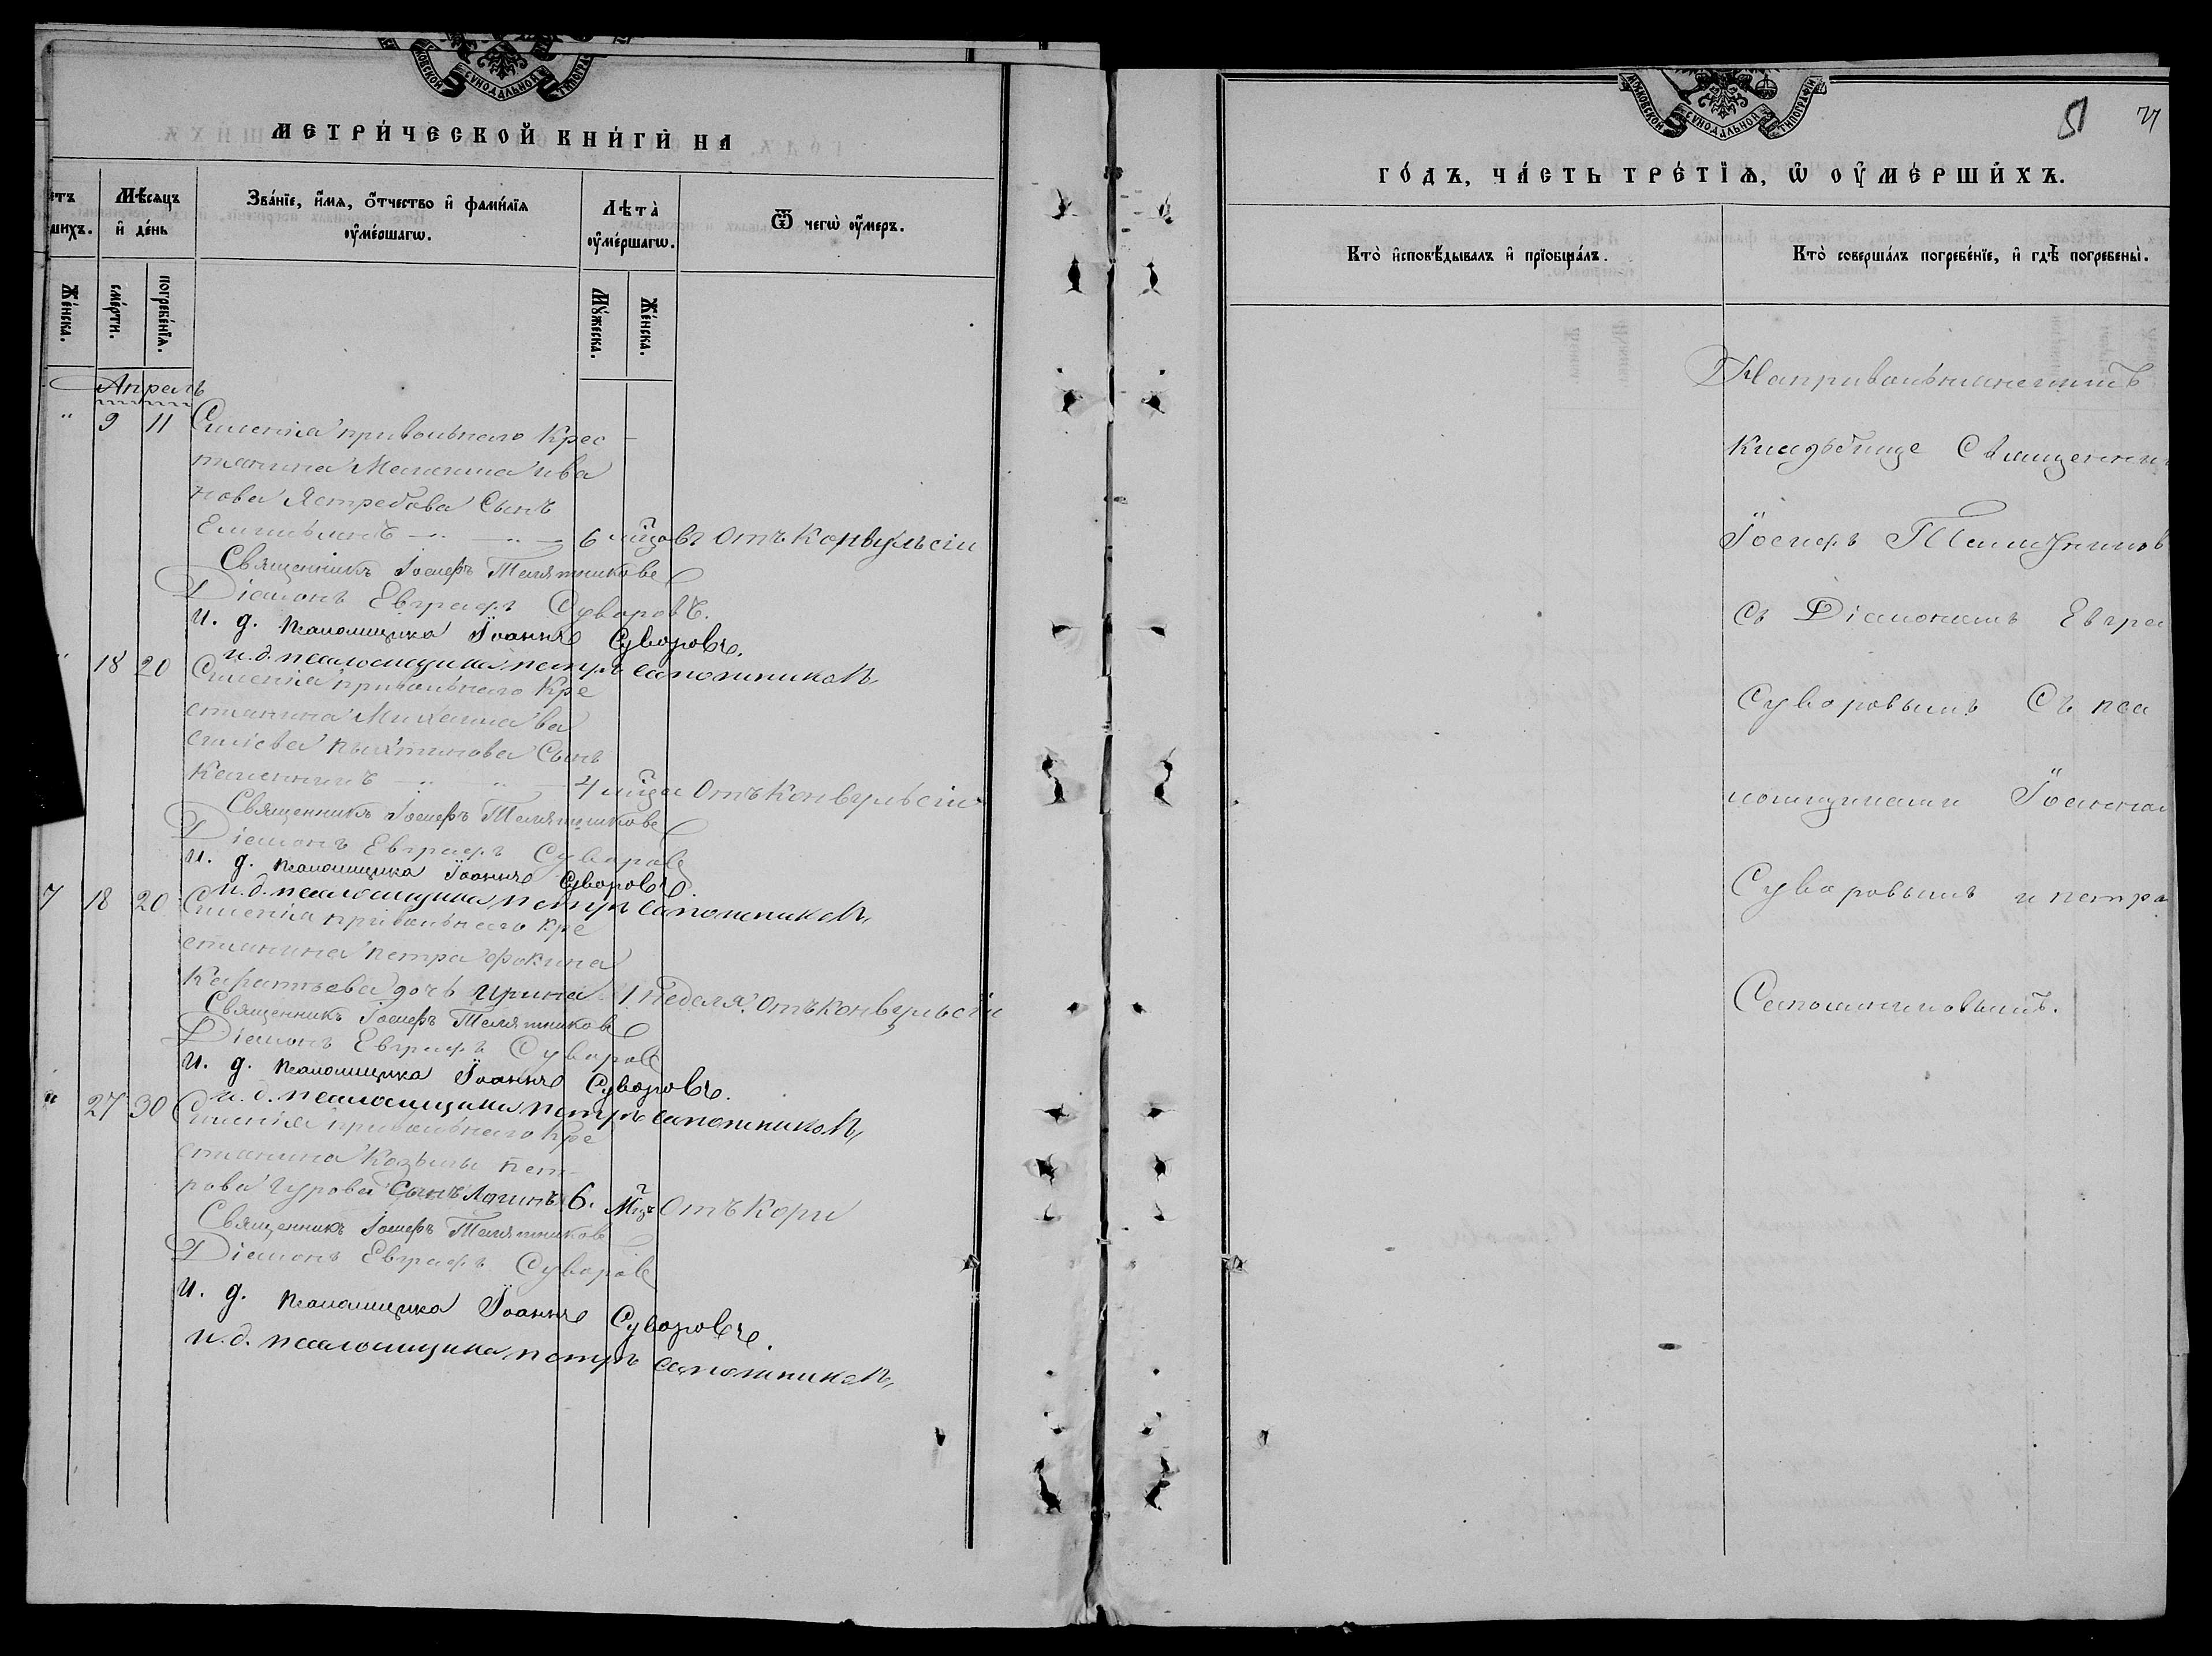 МЕТРИ́ЧЕСКОЙ КНИ́ГИ НА
Мѣ́сяцъ и҆ де́нь
Зва́нїе, и҆́мѧ, ѻ҆́тчество и҆ фами́лїѧ ᲂу҆ме́ршагѡ.
Лѣта̀ ᲂу҆ме́ршагѡ.
Ѿ чегѡ̀ ᲂу҆́меръ.
Же́нска.
сме́рти.
погребе́нїѧ.
Мꙋ́жеска.
Же́нска.
Апрель
" 9 11 Селенія привольнаго Крес-
тьянина ива
нова Ястребова Сынъ
6 мцовъ Отъ Конвульсіи
Священникъ Іосифъ Телятниковъ
Діаконъ Евграфъ Суворовъ.
и. д. псаломщика Іоаннъ Суворовъ.
и. д. псаломщика петръ сапожниковъ,
" 18 20 Селенія привольнаго Кре
стьянина Михаила ва
сильева Сынъ
4 мца Отъ Конвульсіи
Священникъ Іосифъ Телятниковъ
Діаконъ Евграфъ Суворовъ
и. д. псаломщика Іоаннъ Суворовъ.
и. д. псаломщика петръ сапожниковъ,
7 18 20 Селенія привольнаго Кре
стьянина петра Фокина
дочь Ирина 1 неделя. Отъ Конвульсіи
Священникъ Іосифъ Телятниковъ
Діаконъ Евграфъ Суворовъ
и. д. псаломщика Іоаннъ Суворовъ.
и. д. псаломщика петръ сапожниковъ,
" 27 30 Селенія привольнаго Кре
стьянина Козьмы пет-
рова Гурова Сынъ Логинъ 6. Мцъ Отъ Кори
Священникъ Іосифъ Телятниковъ
Діаконъ Евграфъ Суворовъ
и. д. псаломщика Іоаннъ Суворовъ.
и. д. псаломщика петръ сапожниковъ,
51
ГО́ДЪ, ЧА́СТЬ ТРЕ́ТЇѦ, Ѡ҆ ОУ҆МЕ́РШИХЪ.
Кто̀ и҆сповѣ́дывалъ и҆ прїобща́лъ.
Кто̀ соверша́лъ погребе́нїе, и҆ гдѣ̀ погребены̀.
На
Кладбище Священни
Іосифъ
съ Діакономъ Евгра
Суворовымъ Съ пса
ломщиками Іоанном
Суворовымъ и петро
Сапожниковымъ.